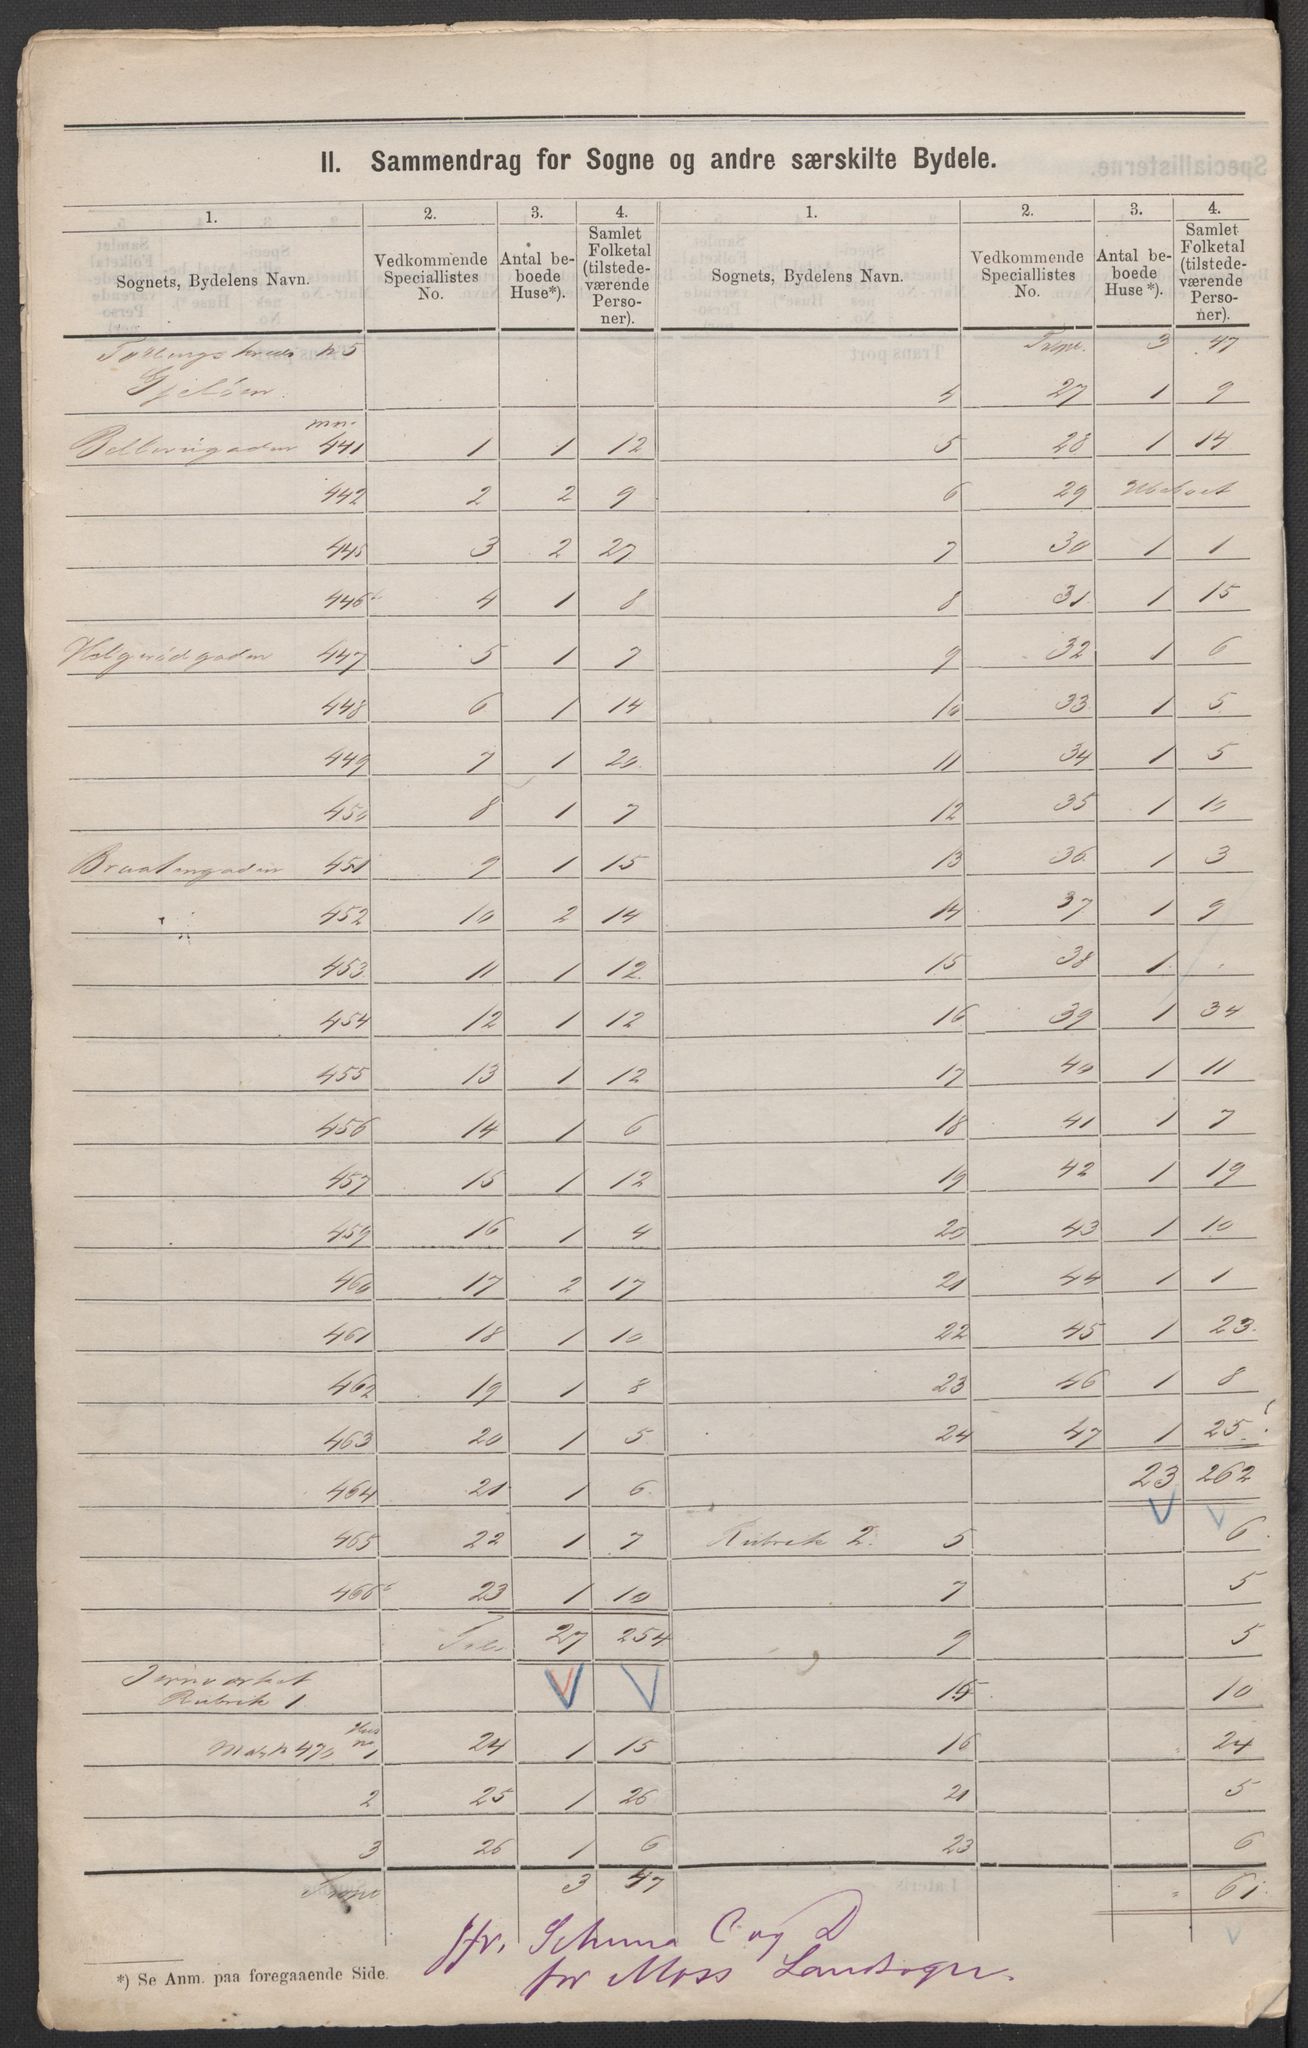 II. Sammendrag for Sogne og andre særskilte Bydele.
1. 2. 3. 4. 1. 2. 3. 4.
Sognets, Bydelens Navn. Vedkommende Speciallistes No. Antal beboede Huse*). Samlet Folketal (tilstedeværende Personer). Sognets, Bydelens Navn. Vedkommende Speciallistes No. Antal beboede Huse*). Samlet Folketal (tilstedeværende Personer).
Tællingskreds No 5 3 47
Gjelöen. 4 27 1 9
441 1 1 12 5 28 1 14
442 2 2 9 6 29 Ubeboet
445 3 2 27 7 30 1 1
446 4 1 8 8 31 1 15
Helgerödgaden 447 5 1 7 9 32 1 6
448 6 1 14 10 33 1 5
449 7 1 20 11 34 1 5
450 8 1 7 12 35 1 10
Braatengaden 451 9 1 15 13 36 1 3
452 10 2 14 14 37 1 9
453 11 1 12 15 38 1 .
454 12 1 12 16 39 1 34
455 13 1 12 17 40 1 11
456 14 1 6 18 41 1 7
457 15 1 12 19 42 1 19
459 16 1 4 20 43 1 10
460 17 2 17 21 44 1 1
461 18 1 10 22 45 1 23.
462 19 1 8 23 46 1 8
463 20 1 5 24 47 1 25.
464 21 1 6 23 262
465 22 1 7 Rubrik 2. 5 6.
466b 23 1 10 7 5
27 254 9 5
Jernværket
Rubrik 1. 15 10
Mat. No 470 Hus No 1 24 1 15 16 24
2 25 1 26 21 5
3 26 1 6 23 6
3 47 61.
jfr. Schema C og D
for Moss Landsogn.
*) Se Anm. paa foregaaende Side.